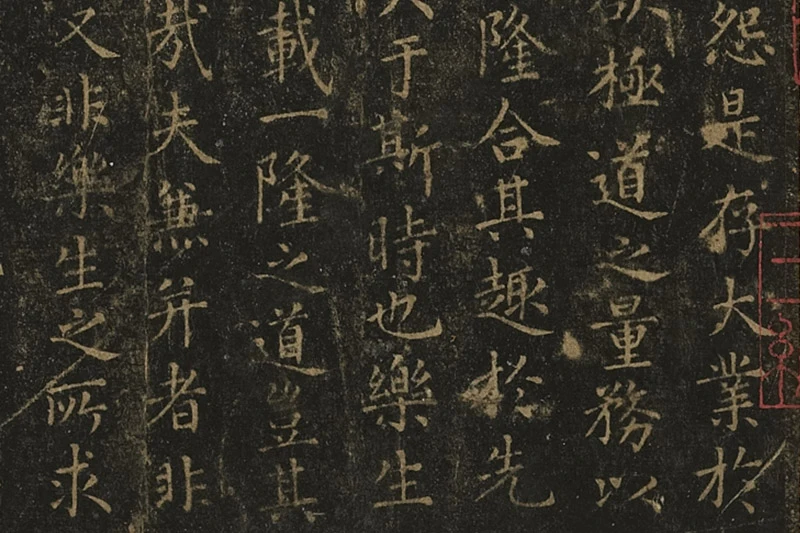 怨是存大業於
極道之量務以
隆合其趣於先
于斯時也樂生
載一隆之道豈其
哉夫兼并者非
又非樂生之所求